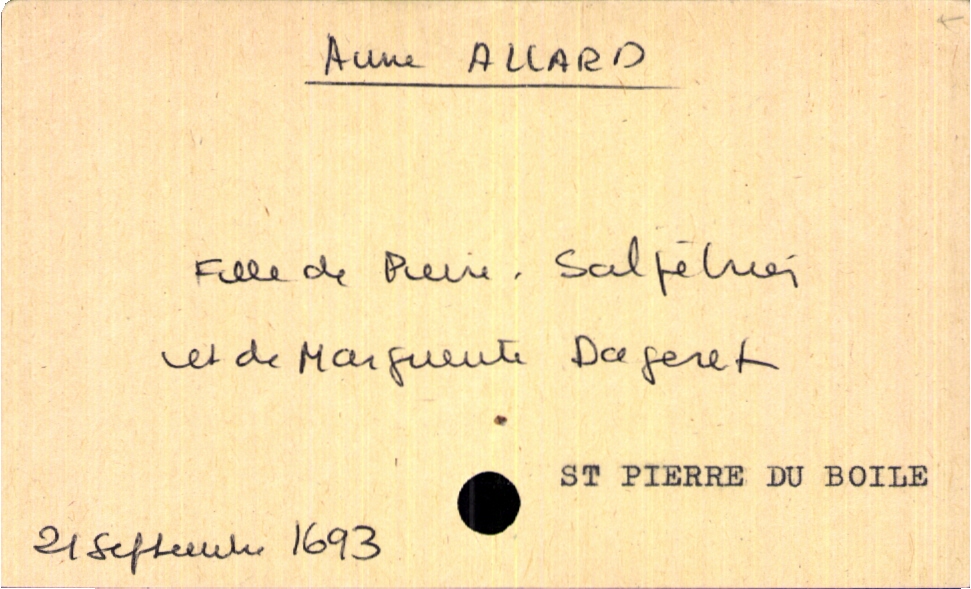 Anne ALLARD
Fille de Pierre. Salpêtrier
et de Marguerite Dageret
ST PIERRE DU BOILE
21 Septembre 1693